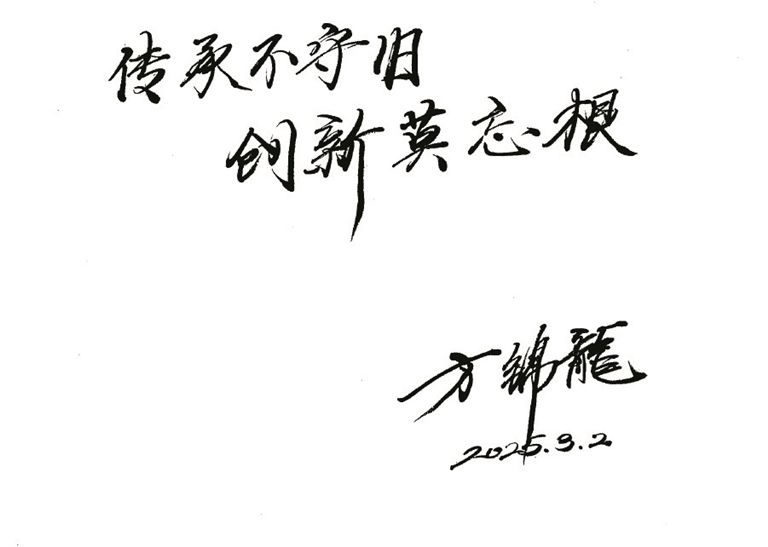 传承不守旧
创新莫忘根
方錦龍
2025.3.2